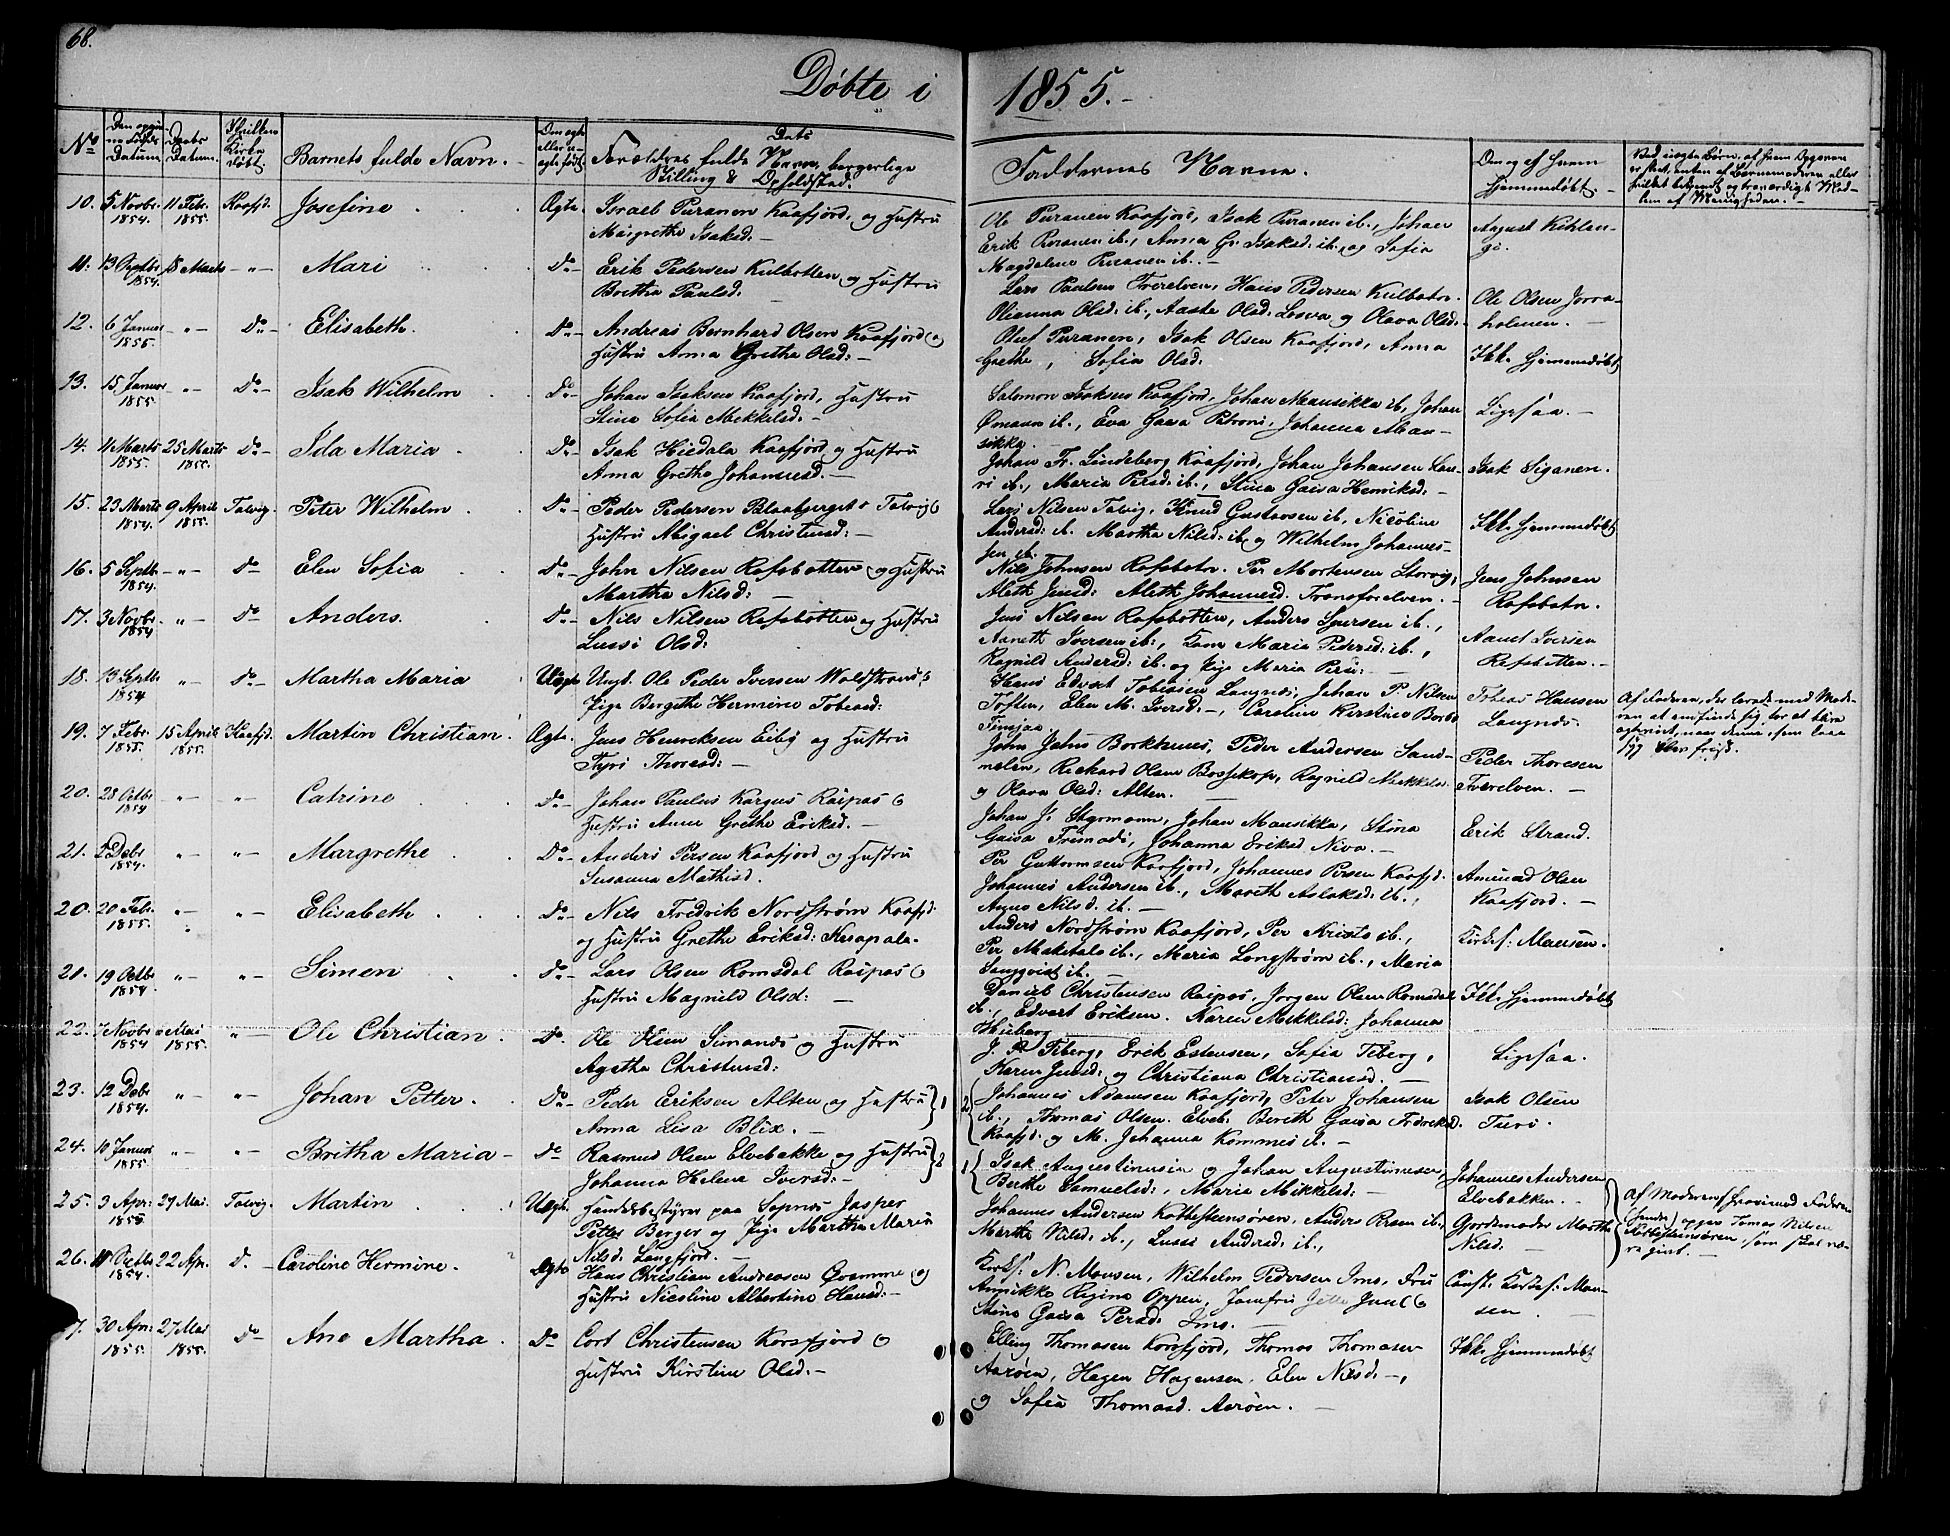 68.
Døbte i 1855.-
No
Datum.
Daabs Datum.
Kirke døbt.
Barnets fulde Navn.-
Om ægte eller uægte født
Forældres fulde Navn, borgerlige Stilling & Opholdsted.
Faddernes Navne.
Om og af hvem Hjemmedøbt.-
10. 5 Novbr. 1854. 11 Febr. 1855. Kaafjd. Josefine Ægte. Israel Puranen Kaafjord, og Hustru
Margrethe Isaksd:-
Ole Puranen Kaafjord, Isak Puranen ib., Johan
Erik Puranen ib., Anna Gr. Isaksd. ib. og Sofia
Magdalena Puranen ib.-
August Kihlange.
11. 13 Septbr 1854. 18 Marts -"- Mari Do- Erik Pedersen Kulbotten og Hustru
Britha Paulsd:
Lars Paulsen Tverelven, Hans Pedersen Kulbotn.
Olianna Olsd: ib., Aaste Olsd. og Olava Olsd:
Ole Olsen Jorraholmen.-
12. 6 Januar 1855. -"- Do- Elisabeth Do- Andreas Bernhard Olsen Kaafjord og
Hustru Anna Gretha Olsd:-
Oluf Puranen, Isak Olsen Kaafjord, Anna
Grethe, Sofia Olsd:
Ikke Hjemmedøbt
13. 15 Januar 1855. -"- Do- Isak Wilhelm Do- Johan Isaksen Kaafjord, Hustru
Stina Sofia Mikkelsd:-
Salomon Isaksen Kaafjord, Johan Mansikka ib., Johan
Ømann ib., Eva Gaisa Petroni, Johanna Mansikka.
Ligesaa.-
14. 4 Marts 1855. 25 Marts 1855. Do- Ida Maria Do- Isak Hiedala Kaafjord og Hustru
Anna Grethe Johannesd.-
Johan Fr. Lindeberg Kaafjord, Johan Johansen Lauri ib., Maria Persd: ib., Stina Gaisa Henriksd:-
Isak Siganen.
15. 23 Marts 1854. 9 April 1855. Talvig. Peter Wilhelm Do- Peder Pedersen Talvig &
Hustru Abigael Christensd:-
Lars Nilsen Talvig, Knud Gustavsen ib., Nicoline
Andersd: ib. Martha Nilsd: ib. og Wilhelm Johannessen ib.
Ikke Hjemmedøbt
16. 5 Septbr. 1854. -"- Do Elen Sofia Do- John Nilsen Rafsbotten og Hustru
Martha Nilsd:-
Nils Johnsen Rafsbotn. Per Mortensen Storvig,
Aleth Jensd: Aleth Johannesd. Transfarelven.-
Jens Johnsen Rafsbotn.
17. 3 Novbr. 1854 -"- Do Anders. Do- Nils Nilsen Rafsbotten og Hustru
Lussi Olsd:
Jens Nilsen Rafsbotten, Anders Iversen ib.,
Aaneth Iversen ib., Kone Maria Pedersd: ib.,
Ragnild Andersd: ib. og Pige Maria
Aanet Iversen Rafsbotten.-
18. 13 Septbr. 1854 -"- Do- Martha Maria Uægte Ungk. Ole Peder Iversen &
Pige Bergithe Hermine Tobiasd:
Hans Edvart Tobiasen Langnes, Johan P. Nilsen
Toften, Elen M. Iversd:-, Caroline Kirstine
Tobias Hansen Langnes.
19. 7 Febr. 1855. 15 April 1855. Kaafjd. Martin Christian Ægte. Jens Henriksen Eiby og Hustru
Thoresd:-
John Johns Borkhunes, Peder Andersen Sandmelen, Rickard Olsen Bossekop, Ragnild Mikkelsd:
og Olava Olsd: Alten.
Peder Thoresen Tverelven.-
20. 28 Octbr. 1854 -"- -"- Catrine Do- Johan Paulus Kargus Raipas &
Hustru Anne Grethe Eriksd.-
Johan J. Johan Mansikka, Stina
Gaisa Johanna Eriksd. Niva.-
Erik Strand.
21. Decbr 1854. -"- -"- Margrethe Do- Anders Persen Kaafjord og Hustru
Susanna Mathisd.
Per Guttormsen Kaafjord, Johannes Persen Kaafjd.
Johannes Andersen ib., Marith Aslaksd. ib.,
Anne Nilsd. ib.-
Amund Olsen Kaafjord.-
20. 20 Febr. 1855. -"- -"- Elisabeth Do- Nils Fredrik Nordstrøm Kaafjd.
og Hustru Grethe Eriksd: Knapala.
Anders Nordstrøm Kaafjord, Per Kristo ib.,
Per Maketalo ib., Maria Langstrøm ib., Maria
ib.-
Kirkes: Mansen.
21. 19 Octbr 1854 -"- -"- Simen Do- Lars Olsen Romsdal Raipas &
Hustru Magnild Olsd:-
Daniel Christensen Raipas, Jørgen Olsen Romsdal
ib., Edvart Eriksen. Karen Mikkelsd: Johanna
Ikke Hjemmedøbt
22. 7 Novbr 1854 Mai 1855. -"- Ole Christian Do. Ole Olsen Simanes og Hustru
Agatha Christensd:
J. P. Teberg, Erik Estensen, Sofia Teberg,
Karen Jensd: og Christiana Christiansd.-
Ligesaa.
23. 12 Decbr 1854. -"- -"- Johan Petter. Do- Peder Eriksen Alten og Hustru } 1
Anna Lisa Blix.-
2 { Johannes Adamsen Kaafjord, Peter Johansen
ib., Thomas Olsen Elveb. Berith Gaisa Fredriksd.
Kaafjd: og M. Johanna Kommes ib.-
Isak Olsen Turi.
24. 10 Januar 1855. -"- -"- Britha Maria- Do Rasmus Olsen Elvebakke og Hustru } 2
Johanna Helena Iversd:-
1 { Isak Augustinusen og Johan Augustinusen,
Berthe Samuelsd:, Maria Mikkelsd:-
Johannes Andersen Elvebakken.-
25. 3 Apr: 1855 27 Mai. Talvig. Martin Uægte. Handelsbestyrer paa Sopnæs Jasper
Petter Berger og Pige Martha Maria
Nilsd: Langfjord.-
Johannes Andersen Kobbesteensøren, Anders ib.,
Marthe Nilsd: ib., Lussi Andersd: ib.,
Gjordemoder Martha Nilsd:-
26. Octbr 1854. 22 Apr. D.- Caroline Hermine. Ægte Hans Christian Andreasen Øvamme og
Hustru Nicoline Albertine Hansd:-
Kirkes: N. Mansen, Wilhelm Pedersen Fru
Annikke Regine Oppen, Jomfru Jette Juul &
Stine Gaisa Persd:
Const. Kirkes: Mansen
7. 30 Apr: 1855. 27 Mai 1855. Do Ane Martha Do Cort Christensen Korsfjord &
Hustru Kirstine Olsd:-
Elling Thomasen Korsfjord, Thomas Thomasen
Aarøen, Hagen Hagensen, Elen Nilsd:-,
og Sofia Thomasd. Aarøen.-
Ikke Hjemmedøbt